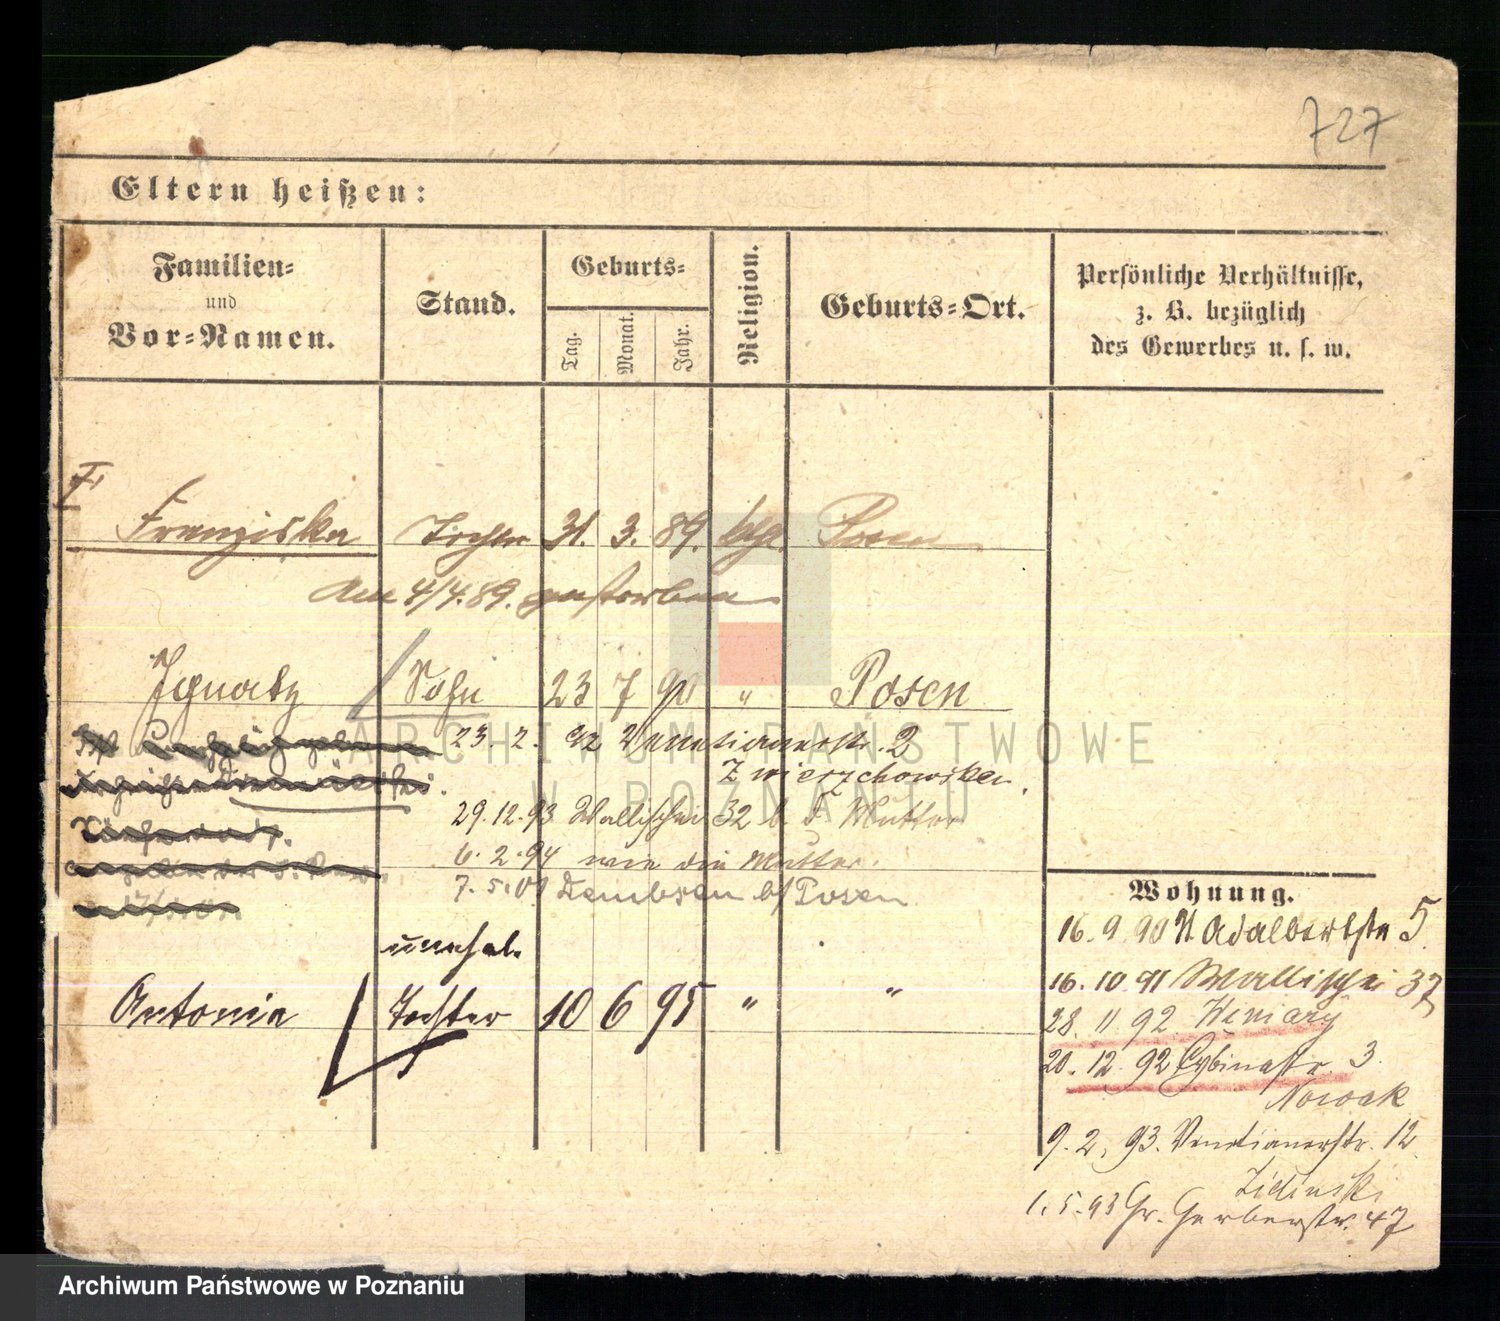 727
Eltern heißen:
Familien- und Vor-Namen.
Stand.
Geburts-
Tag.
Monat.
Jahr.
Religion.
Geburts-Ort.
Persönliche Verhältnisse,
z. B. bezüglich
des Gewerbes u. s. w.
Franziska Tochter 31. 3. 89. kth. Posen
Am 4/4.89. gestorben
Ignatz Sohn 23 7 90 " Posen
23. 2. 92 Venetianerstr. 2
Zwierzchowska.
29.12.93 Wallischei 32 b. d. Mutter
6. 2. 94 wie die Mutter.
7. 5. 01 Dembsen b/Posen
unehel.
Antonia Tochter 10 6 95 " "
Wohnung.
16. 9. 90 Adalbertstr 5
16. 10. 91 Wallischei 37
28. 11. 92 Winiary
20. 12. 92 Cybinastr. 3
Nowak
9. 2. 93. Venetianerstr. 12.
1. 5. 93 Gr. Gerberstr. 47
ARCHIWUM PAŃSTWOWE
W POZNANIU
Archiwum Państwowe w Poznaniu